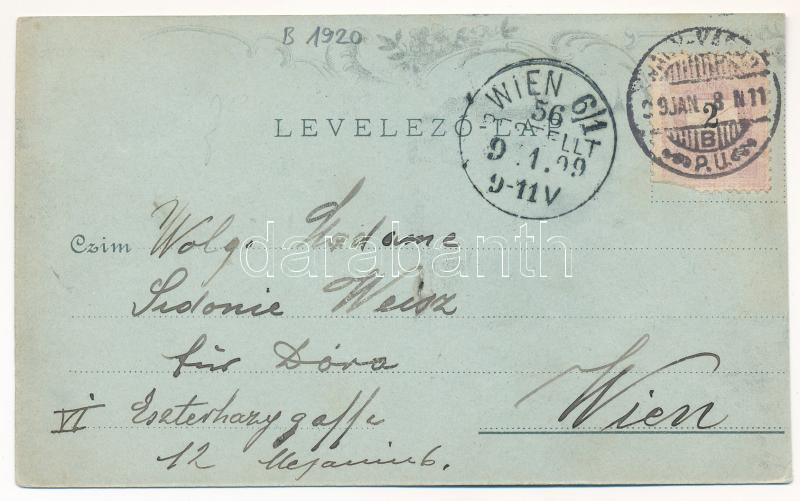 B 1920
LEVELEZŐ-LA
WIEN 6/1
56
BESTELLT
9.1.99
9-11V
NAGY-VÁRAD
99 JAN 8 N11
2
B
P.U.
Czim Wolg. Madame
Sidonie Weisz
für Dóra
VI Eszterhazygasse
12 Mezanin 6.
Wien
darabanth